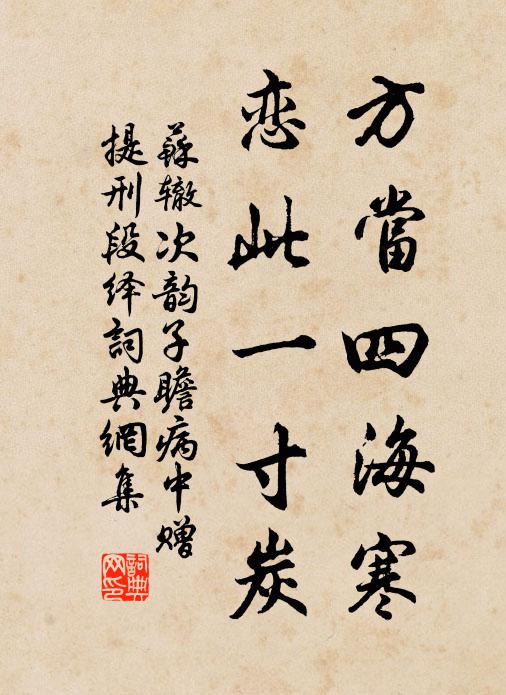 方當四海寒
恋此一寸炭
蘇辙次韵子瞻病中赠
提刑段绎詞典網集
詞典
网印